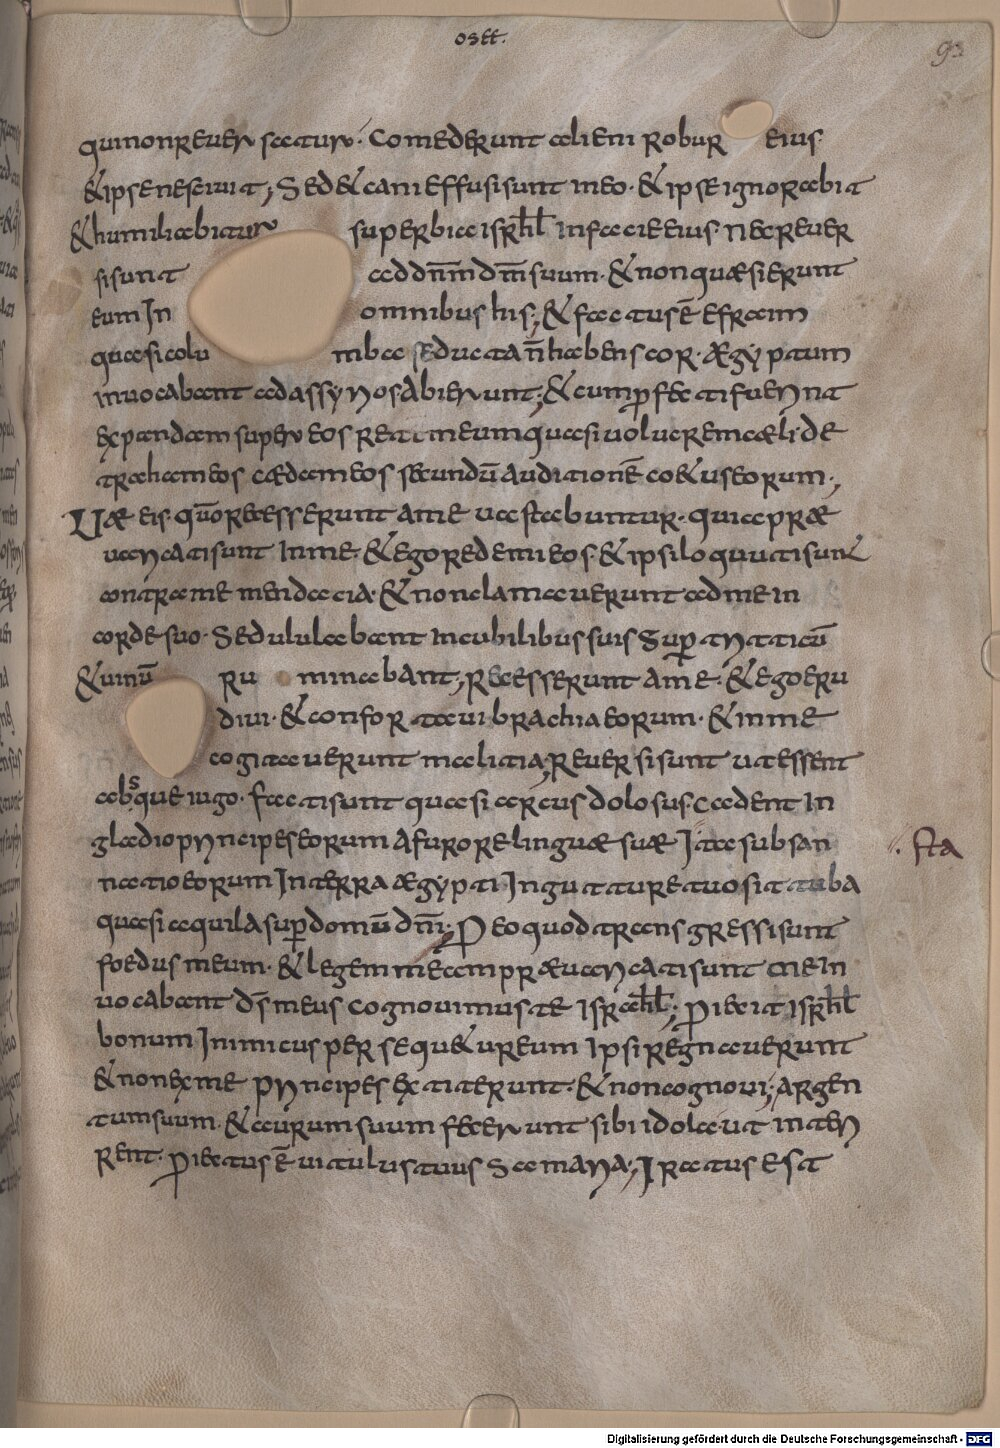 osee.
93
qui non reversatur. Comederunt alieni robur eius.
& ipse nescivit; Sed & cani effusi sunt in eo. & ipse ignorabit
& humiliabitur superbia isrł in facie eius nec rever
si sunt ad dnm dm suum. & non quæsierunt
eum In omnibus his; & factus ē efraim
quasi colu mba seducta n̄ habens cor. Ægyptum
invocabant ad assyrios Abierunt; & cum pfecti fuerint
expandam super eos rete meum quasi volucrem cæli. de
traham eos cædam eos secundū Auditionē coetus eorum.,
Uæ eis. qūo recesserunt A me vastabuntur. quia præ
varicati sunt In me. & ego redemi eos. & ipsi loquuti sunt
contra me mendacia. & non clamaverunt ad me in
corde suo. Sed ululabant In cubilibus suis Sup triticū
& vinū ru minabant; recesserunt A me. & ego eru
divi. & confortavi brachia eorum. & in me
cogitaverunt malitia; Reversi sunt ut essent
absque iugo. facti sunt quasi arcus dolosus cadent In
gladio principes eorum A furore linguæ suæ Ista subsan
natio eorum In terra ægypti In gutture tuo sit tuba
quasi aquila sup domū dnī. P eo quod transgressi sunt
foedus meum. & legem meam prævaricati sunt me In
vocabant ds meus cognovimus te israhł; Piecit isrhł
bonum Inimicus persequetur eum Ipsi regnaverunt
& non ex me principes extiterunt. & non cognovi; Argen
tum suum. & aurum suum fecerunt sibi idola. ut interi
rent. Piectus ē vitulus tuus Samaria; Iratus est
∴ sta
Digitalisierung gefördert durch die Deutsche Forschungsgemeinschaft - DFG